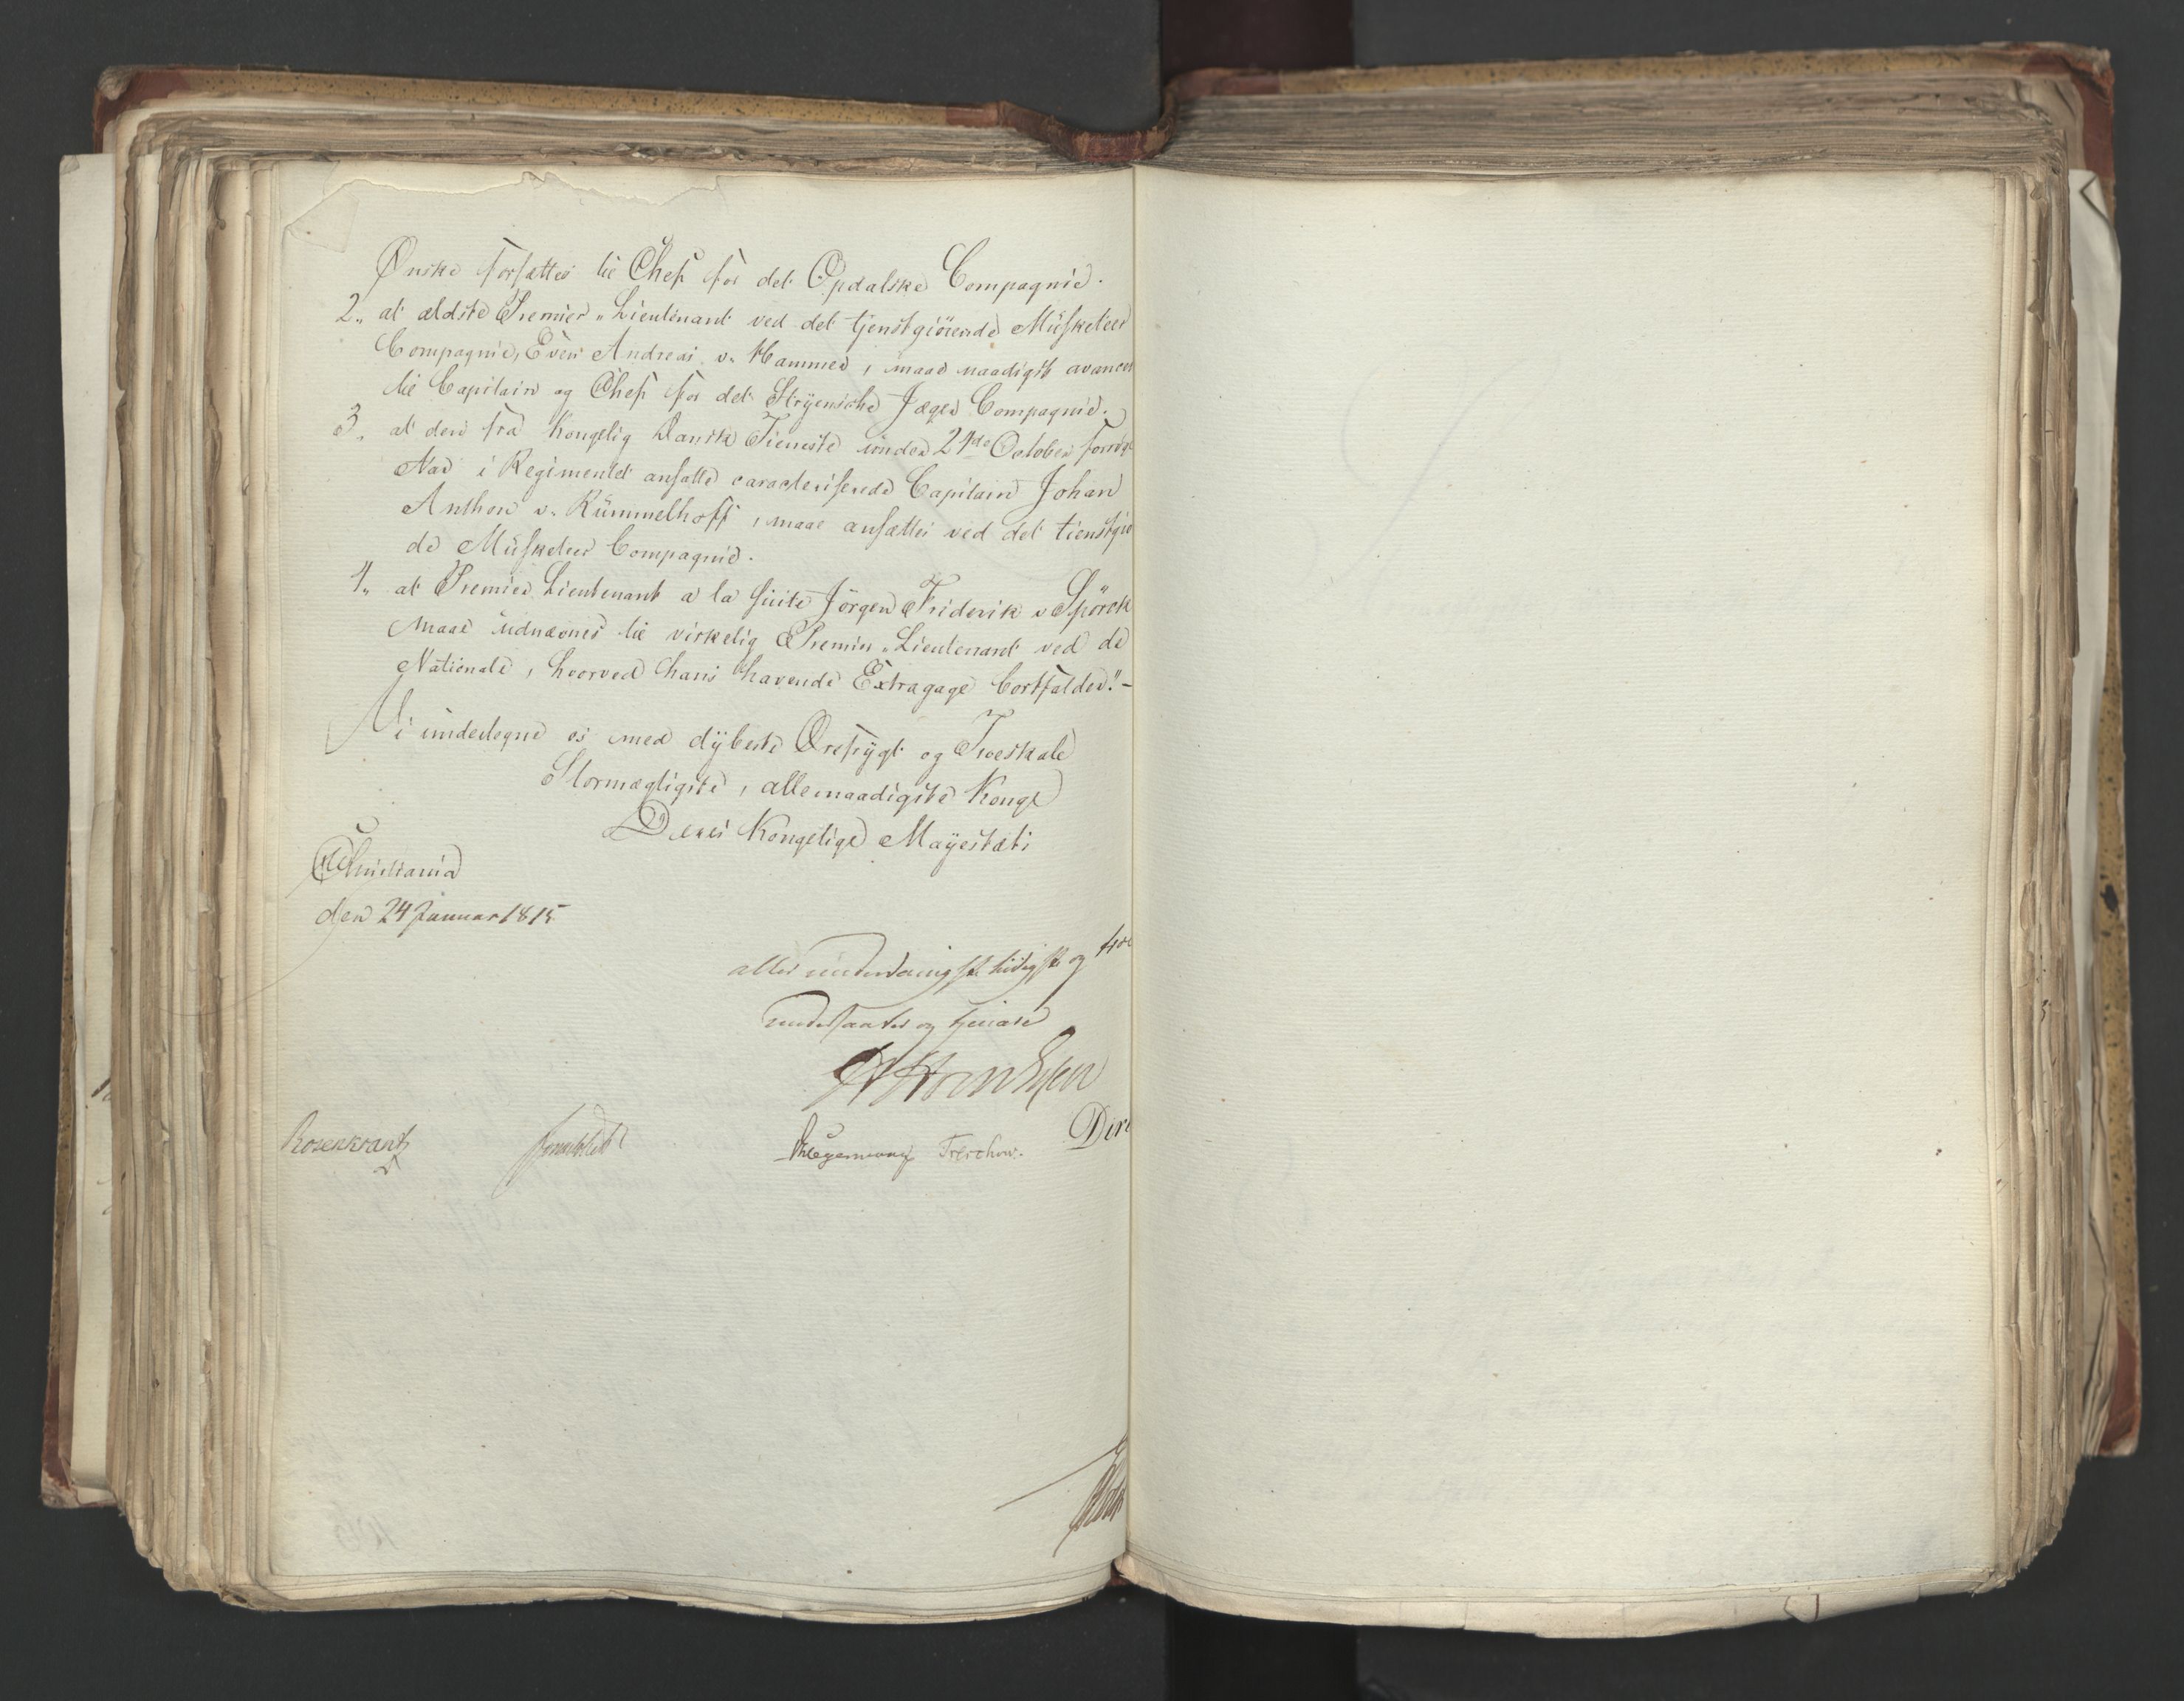 Ønske forsættes til Chef for det Opdalske Compagnie.
2., at ældste Premier-Lieutenant ved det tjenstgiörende Müsketeer
Compagnie, Even Andreas v. Hammer, maae naadigst avancer
til Capitain og Chef for det Stryenske Jæger Compagnie.
3., at den fra Kongelig Dansk Tieneste under 24de October forrige
Aar i Regimentet ansatte caracteriserede Capitain Johan
Anthon v. Rümmelhoff, maae ansættes ved det tienstgiö
de Müsketeer Compagnie.
4., at Premier Lieutenant a la Suite Jörgen Friderik v Spörck
maae üdnævnes til virkelig Premier-Lieutenant ved de
Nationale, hvorved hans havende Extragage bortfalder." -
Vi undertegne os med dÿbeste Ærefrÿgt og Troeskab
Stormægtigste, allernaadigste Konge
Deres Kongelige Mayestæts
Christiania
den 24 Januar 1815
aller underdanigste lydigste og troe
undersaatter og tjenere
Rosenkrantz
Treschow.
Dire